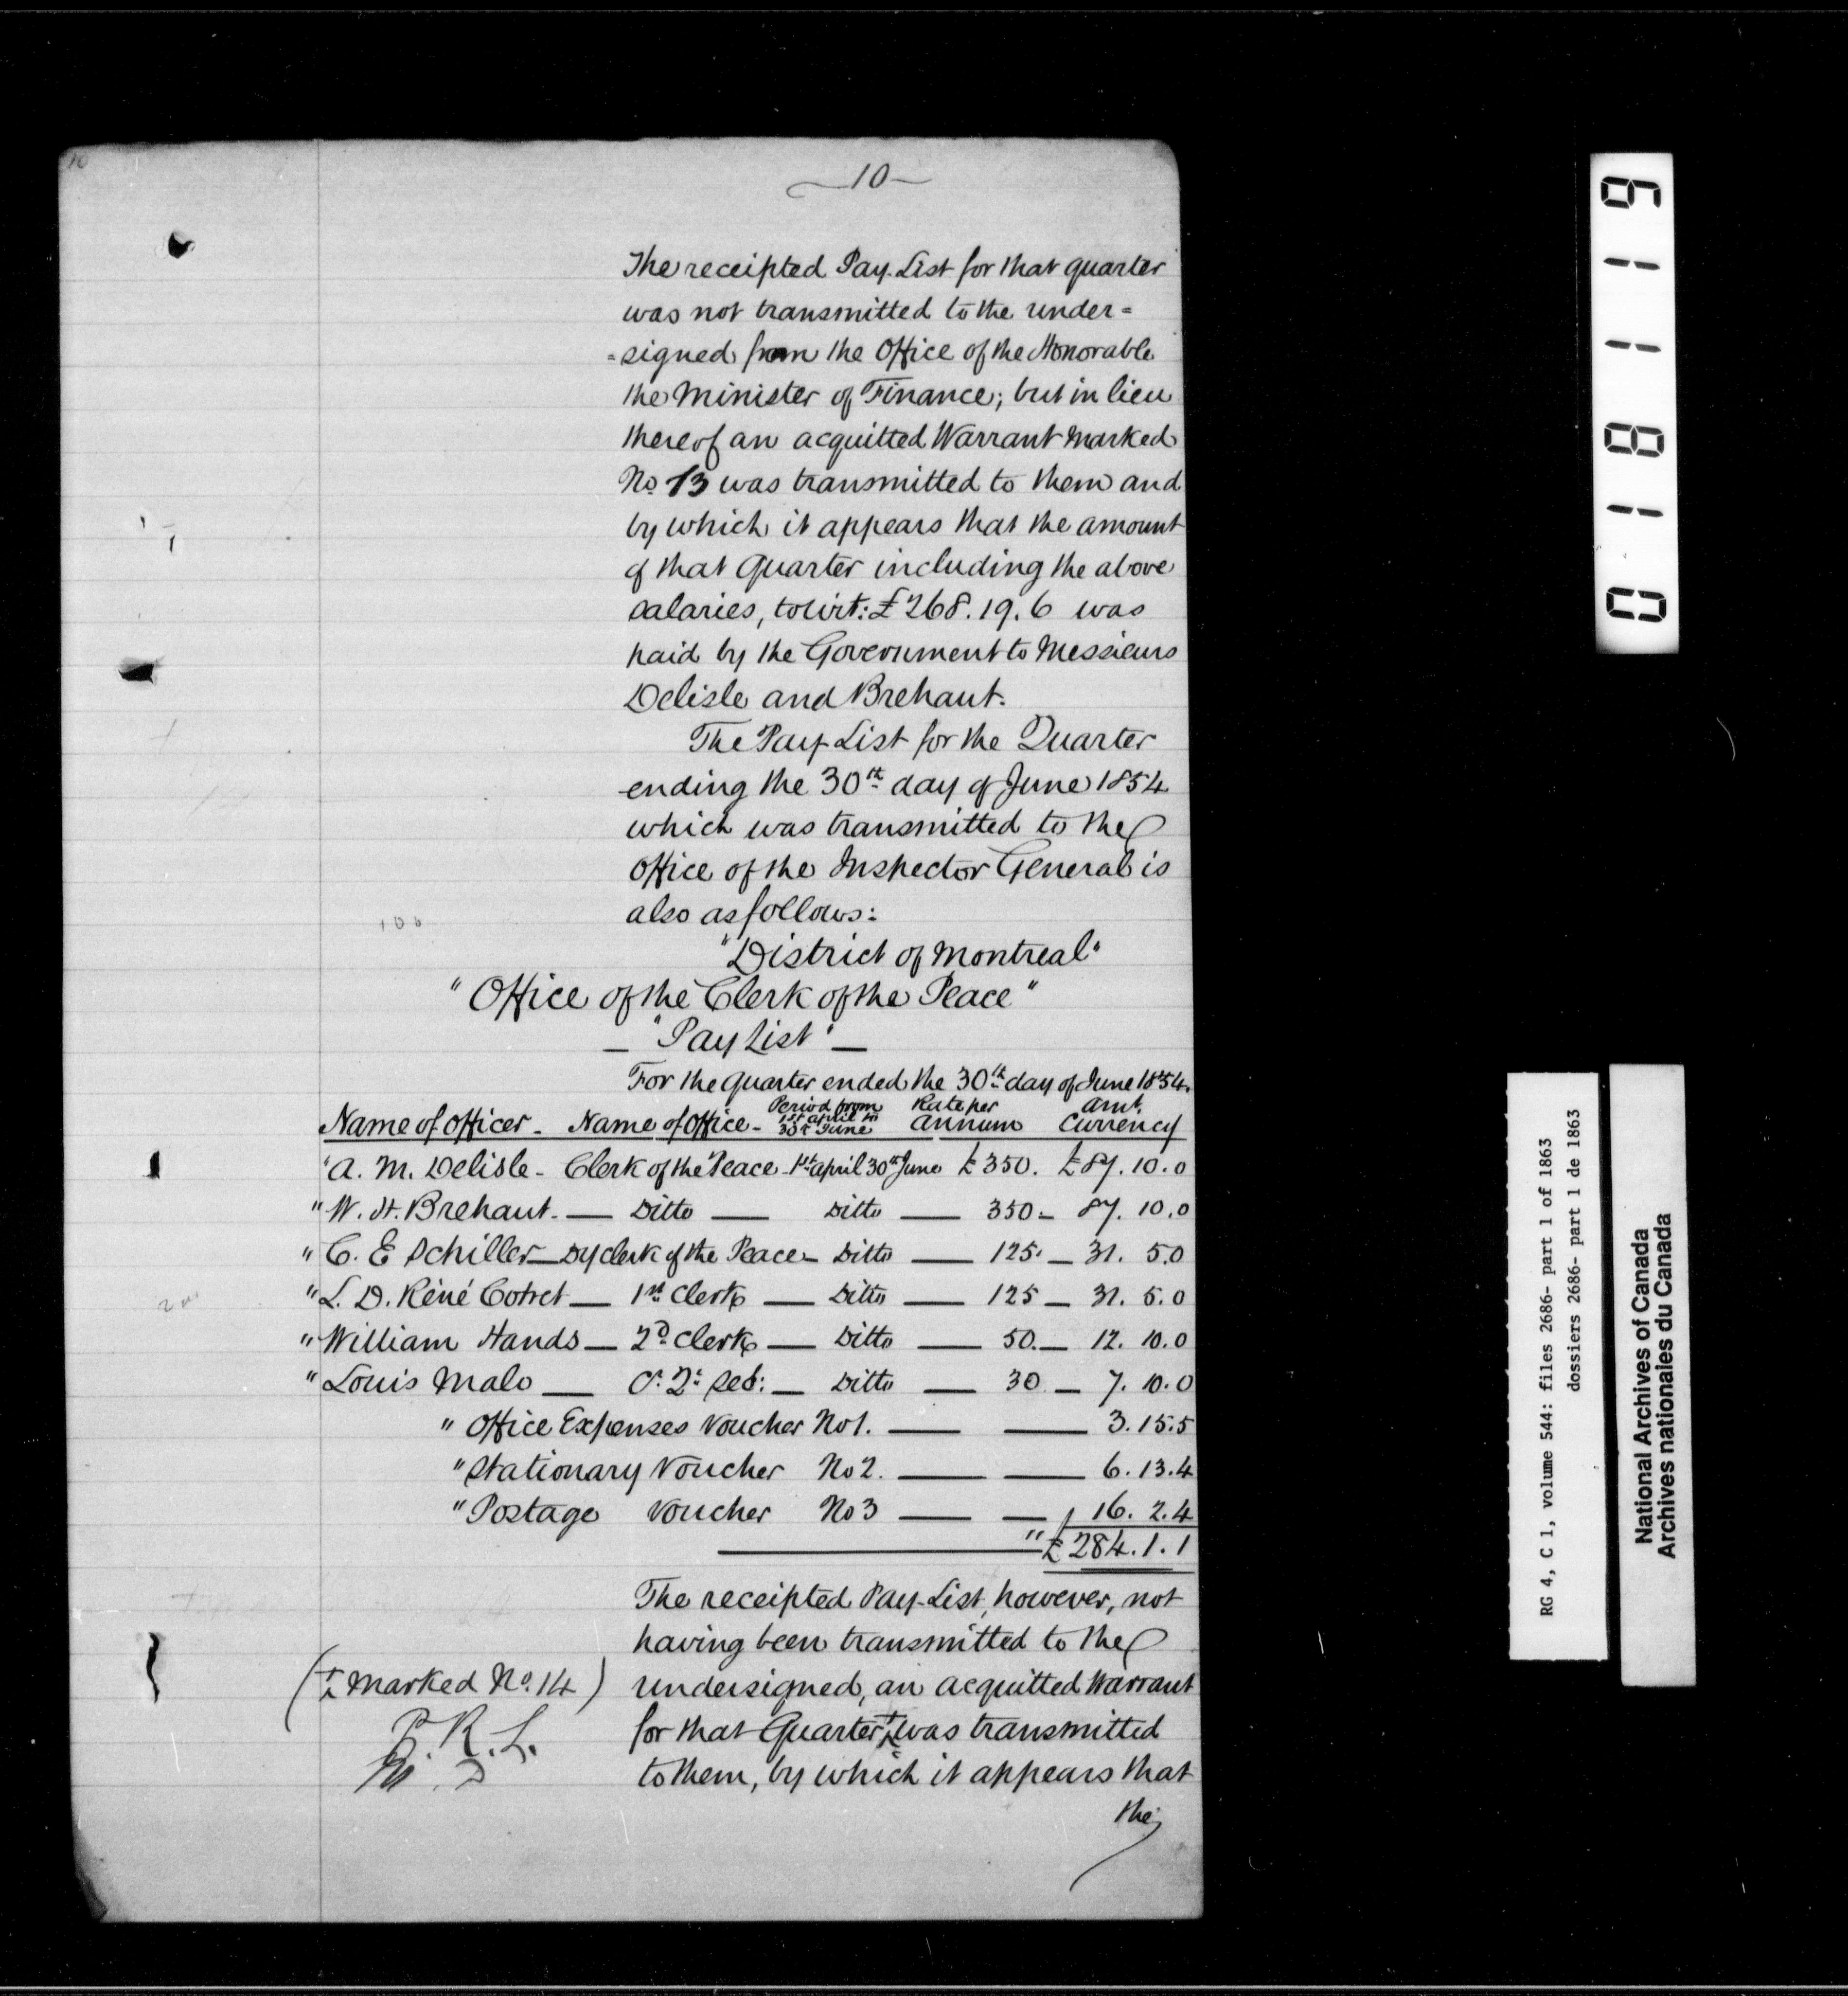 10
—10—
The receipted Pay-List for that quarter
was not transmitted to the under=
=signed from the Office of the Honorable
the Minister of Finance; but in lieu
thereof an acquitted Warrant marked
No 13 was transmitted to them and
by which it appears that the amount
of that Quarter including the above
salaries, to wit: £268.19.6 was
paid by the Government to Messieurs
Delisle and Brehaut.
The Pay-List for the Quarter
ending the 30th day of June 1854
which was transmitted to the
Office of the Inspector General is
also as follows:
"District of Montreal"
"Office of the Clerk of the Peace"
— "Pay List" —
For the quarter ended the 30th day of June 1854.
Name of Officer - Name of Office - Period from 1st April to 30th June Rate per Annum Amt. Currency
"A. M. Delisle - Clerk of the Peace - 1st April 30th June £350. £87.10.0
"W. H. Brehaut. — Ditto — Ditto — 350 - 87.10.0
"C. E Schiller — Dy Clerk of the Peace - Ditto — 125. — 31. 5.0
"L. D. Réné Cotret — 1st Clerk — Ditto — 125 — 31. 5.0
"William Hands — 2d Clerk — Ditto — 50. — 12. 10.0
"Louis Malo — Ditto — 30 — 7. 10.0
"Office Expenses Voucher No 1. — — 3.15.5
"Stationary Voucher No 2. — — 6.13.4
"Postage Voucher No 3 — — 16. 2.4
" £284.1.1
The receipted Pay-List, however, not
having been transmitted to the
(+ marked No. 14) undersigned, an acquitted Warrant
P. R. L. for that Quarter + was transmitted
M. D to them, by which it appears that
the
018119
RG 4, C 1, volume 544: files 2686- part 1 of 1863
dossiers 2686- part 1 de 1863
National Archives of Canada
Archives nationales du Canada